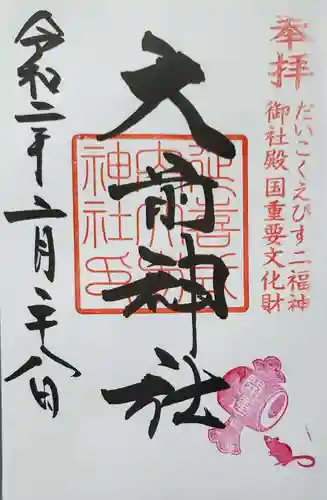 奉拝
だいこくえびす二福神
御社殿国重要文化財
大前神社
延喜式内大前神社印
令和二年二月二十八日